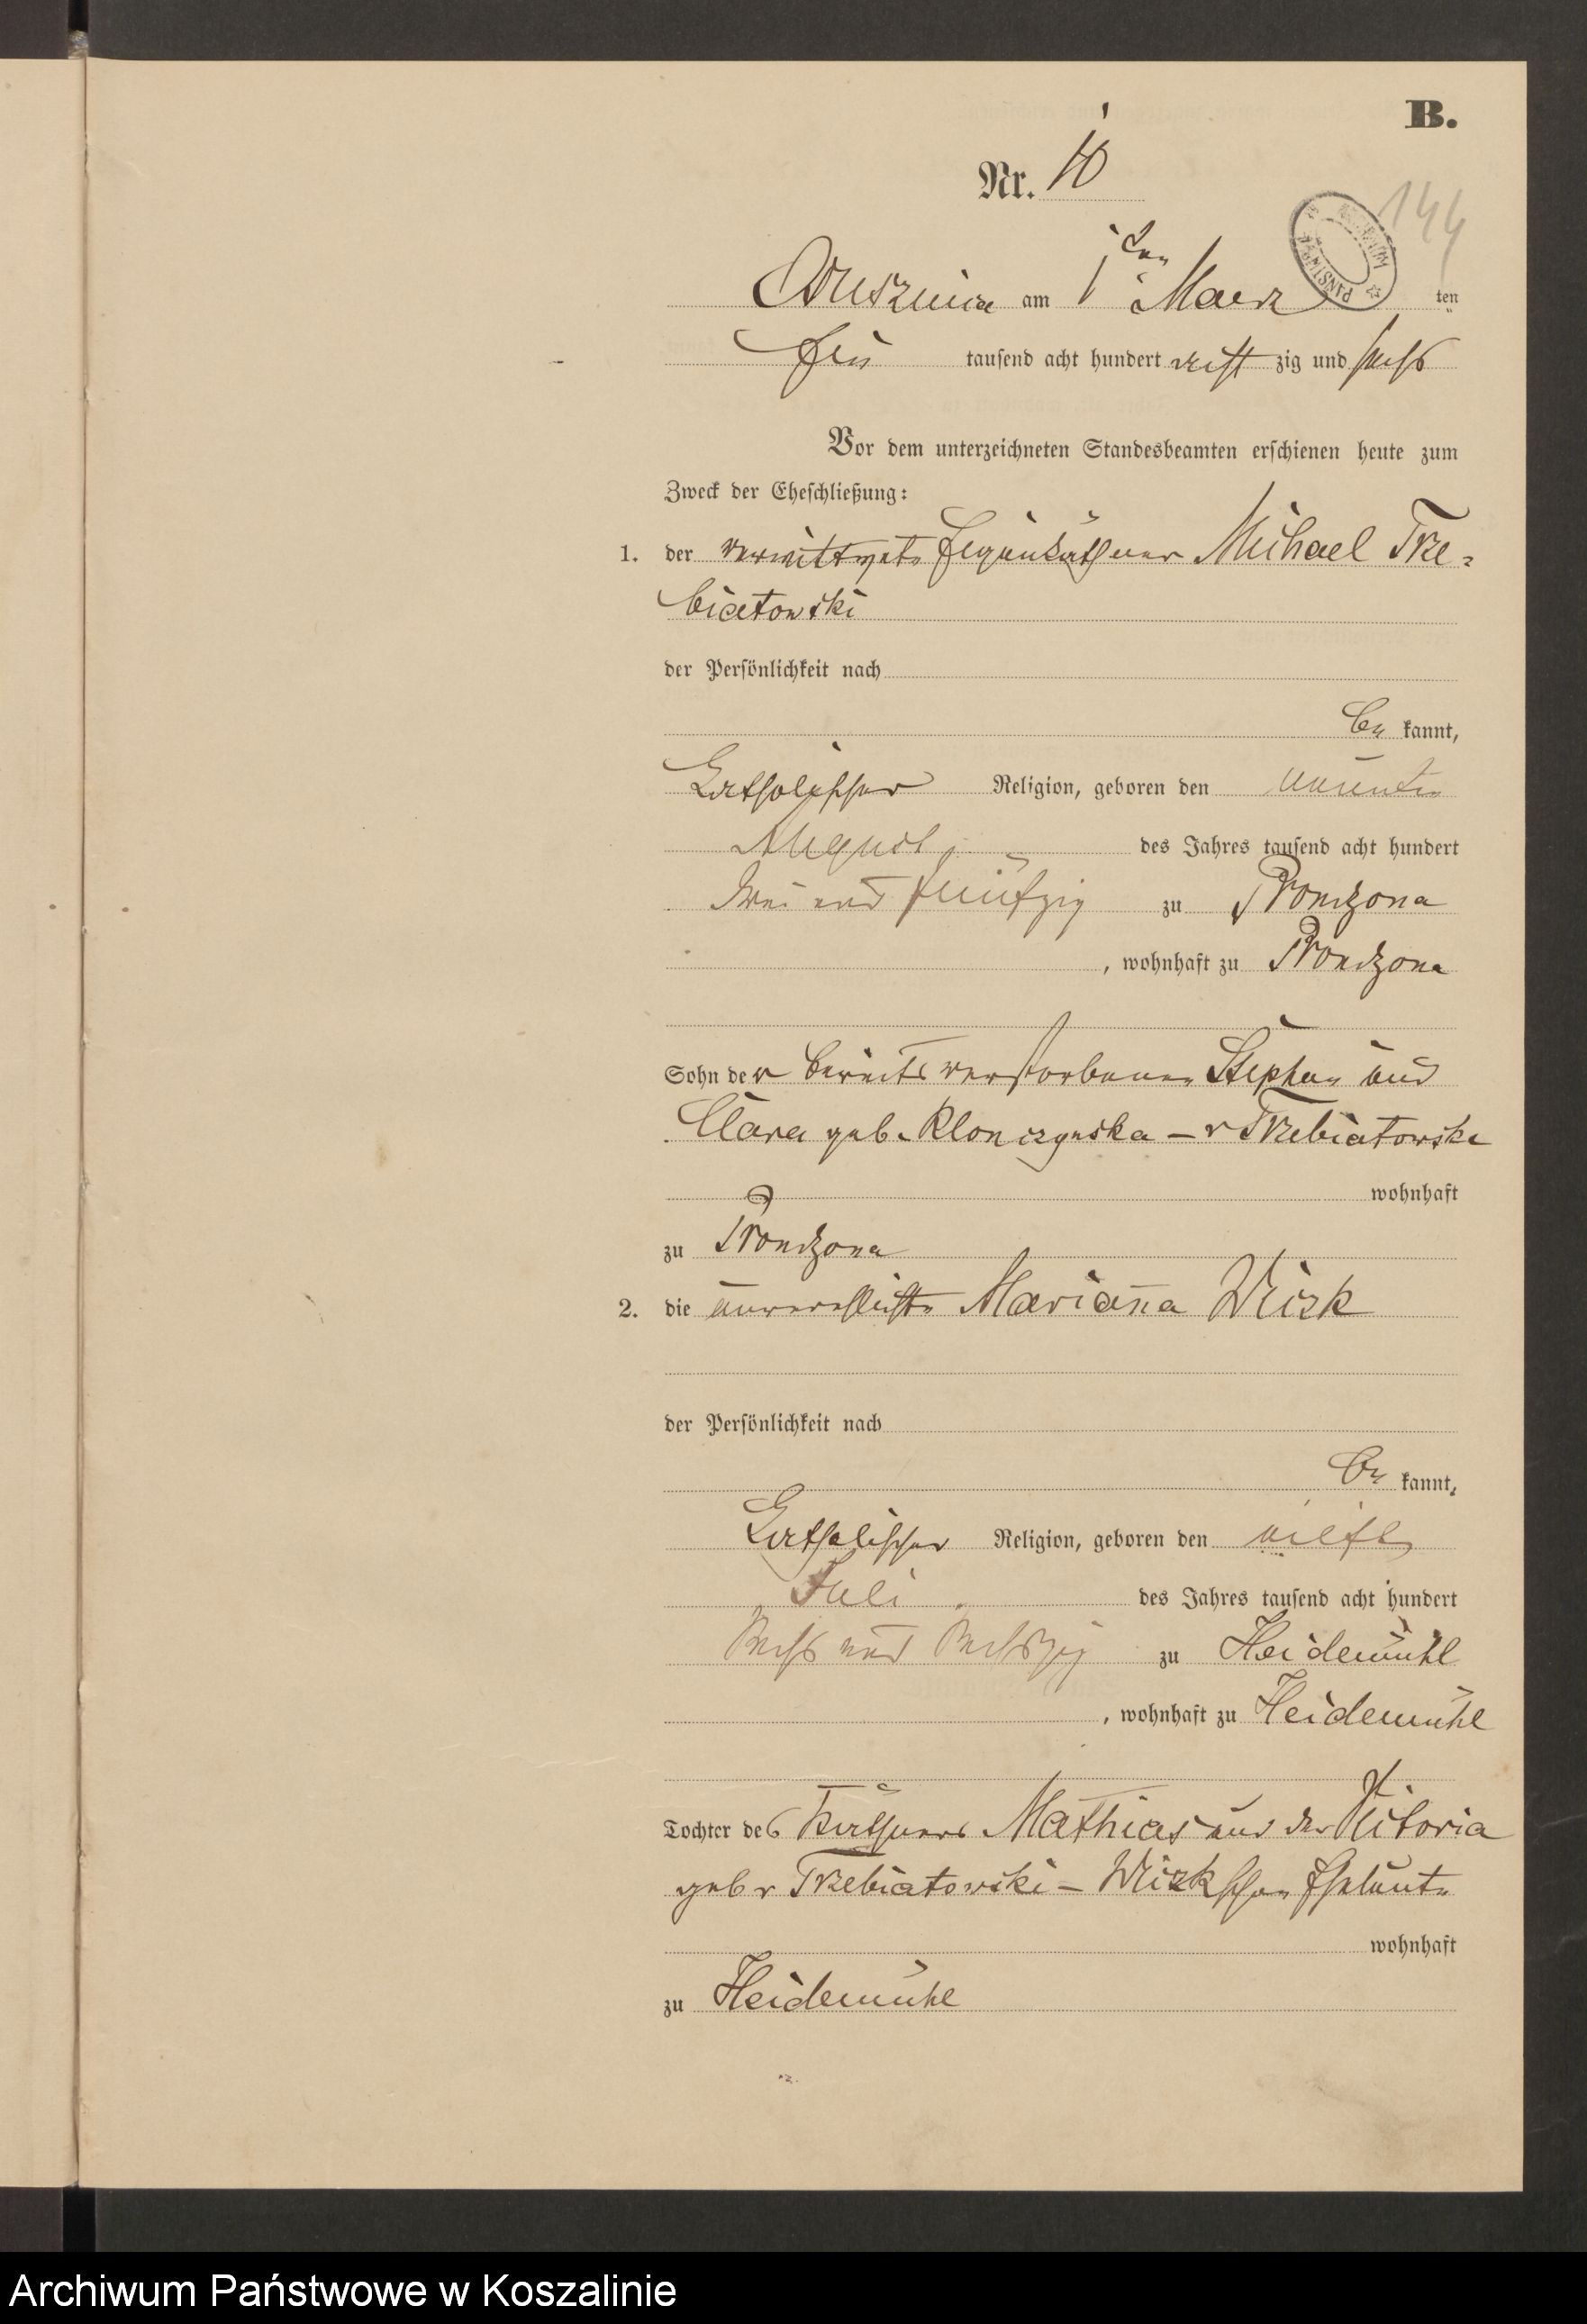 B.
Nr. 10
144
am 1ten Maerz ten
Ein tausend acht hundert acht zig und sechs
Vor dem unterzeichneten Standesbeamten erschienen heute zum
Zweck der Eheschließung:
1. der verwittwete Eigenkäthner Michael Trze-
biatowski
der Persönlichkeit nach
be kannt,
katholischer Religion, geboren den neunten
August des Jahres tausend acht hundert
zwei und fünfzig zu Prondzona
, wohnhaft zu Prondzona
Sohn der bereits verstorbenen Stephan und
Clara geb. Klonczynska - v Trzebiatowski
wohnhaft
zu Prondzona
2. die unverehlichte Marianna Wirk
der Persönlichkeit nach
be kannt,
katholischer Religion, geboren den elften
Juli des Jahres tausend acht hundert
sechs und sechszig zu Heidemühl
, wohnhaft zu Heidemühl
Tochter des Käthners Mathias und der Victoria
geb v Trzebiatowski - schen Eheleute
wohnhaft
zu Heidemühl
Archiwum Państwowe w Koszalinie